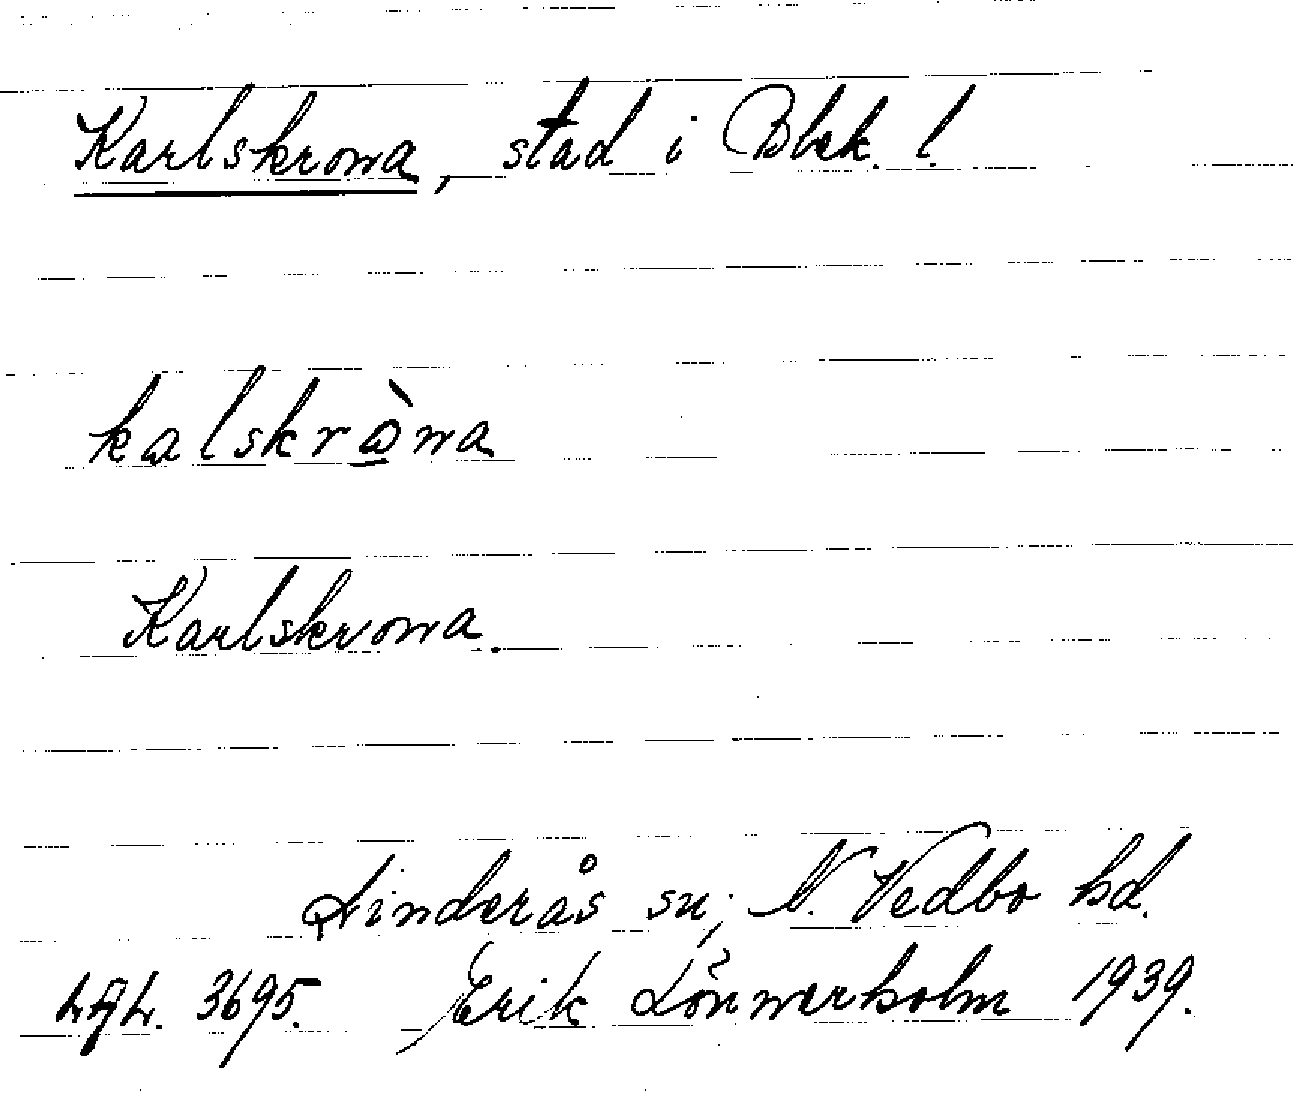 Karlskrona, stad i Blek. l.
kalskrò̱na
Karlskrona.
Linderås sn; N. Vedbo hd.
3695. Erik Lönnerholm 1939.